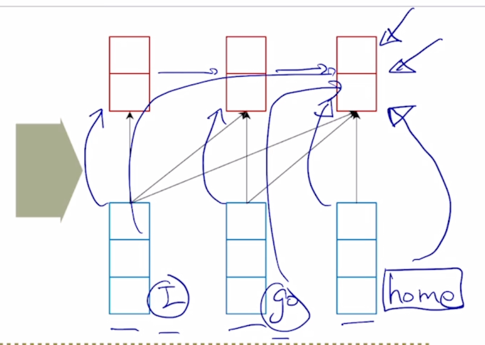 I go home